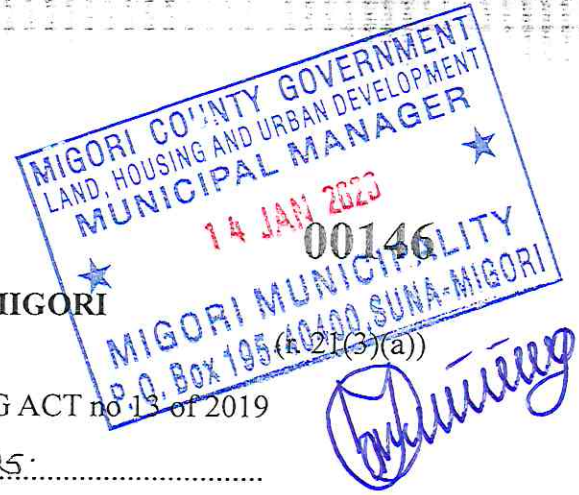 MIGORI COUNTY GOVERNMENT
LAND, HOUSING AND URBAN DEVELOPMENT
MUNICIPAL MANAGER
14 JAN
00146
MIGORI MUNICIPALITY
P.O. Box 195-40400 SUNA-MIGORI
MIGORI
(r. 21(3)(a))
G ACT no 13 of 2019